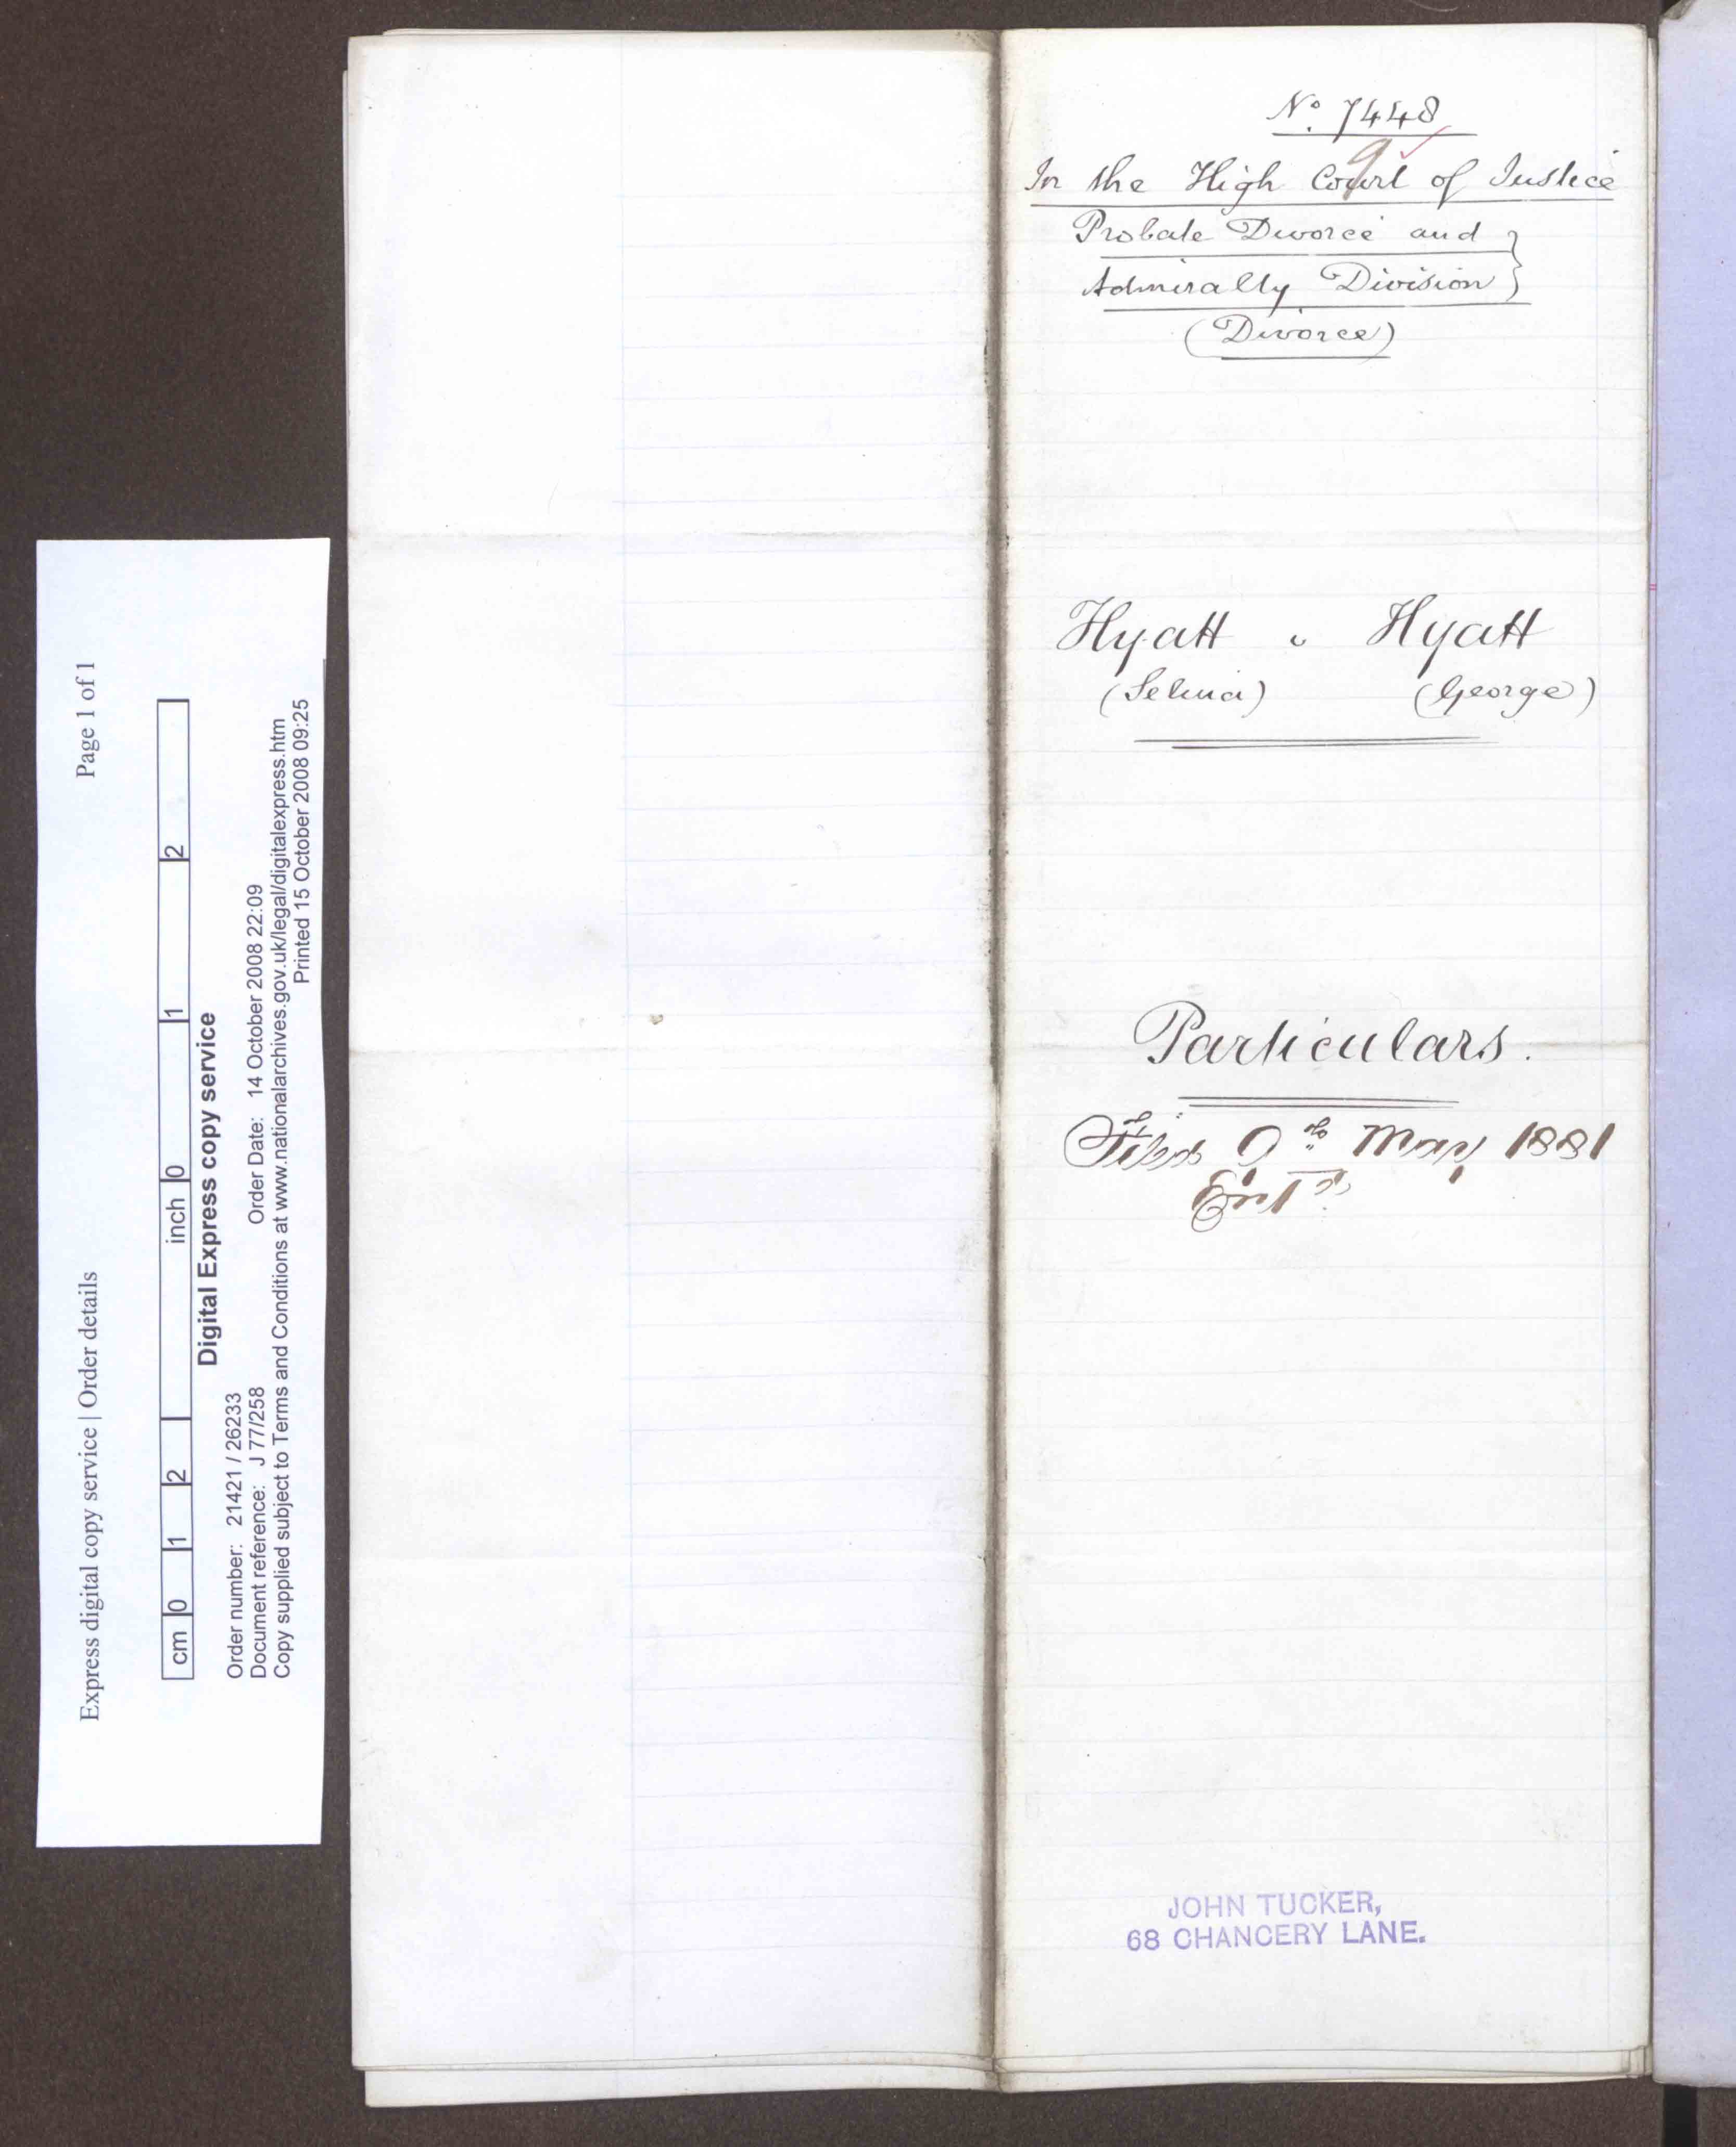 Express digital copy service | Order details Page 1 of 1
cm 0 1 2 inch 0 1 2
Digital Express copy service
Order number: 21421 / 26233 Order Date: 14 October 2008 22:09
Document reference: J 77/258
Copy supplied subject to Terms and Conditions at www.nationalarchives.gov.uk/legal/digitalexpress.htm
Printed 15 October 2008 09:25
No. 7448
9
In the High Court of Justice
Probate Divorce and
Admiralty Division
(Divorce)
Hyatt v Hyatt
(Selina) (George)
Particulars.
Filed 9th May 1881
JOHN TUCKER,
68 CHANCERY LANE.